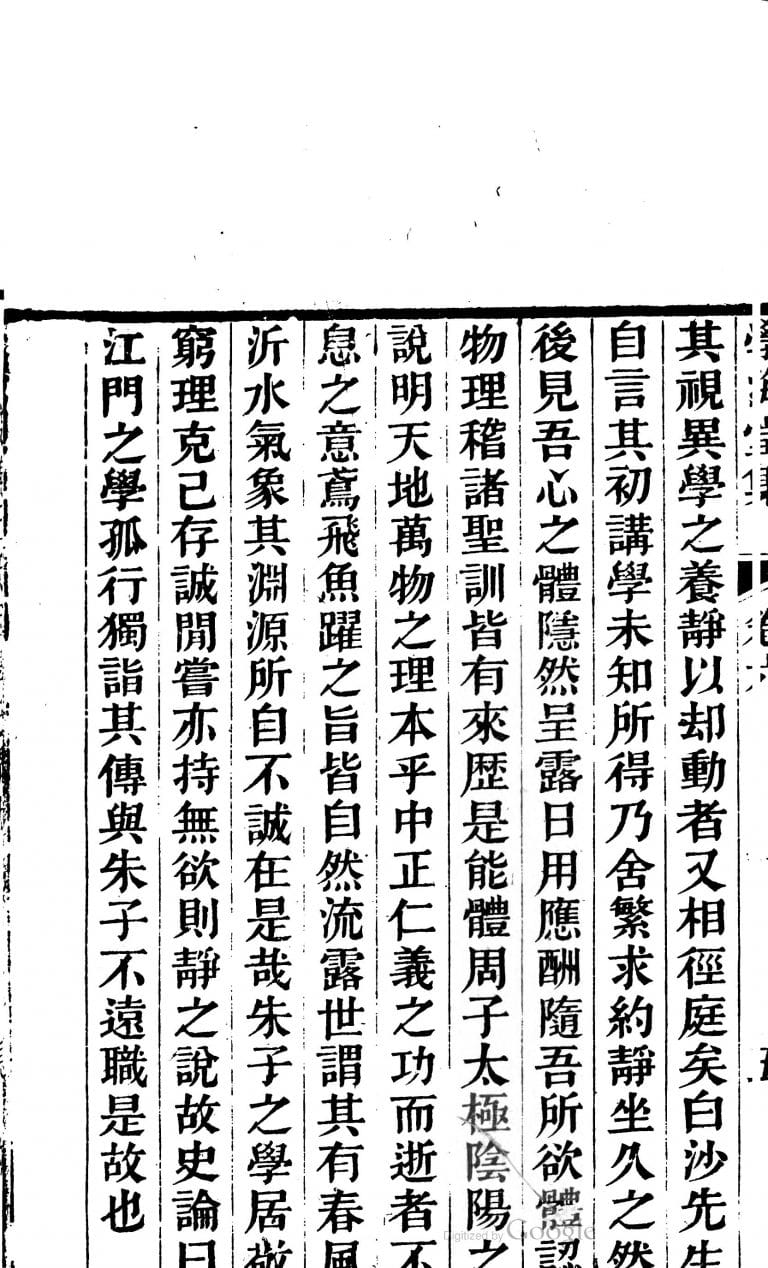 其視異學之養靜以却動者又相徑庭矣白沙先生
自言其初講學未知所得乃舍繁求約靜坐久之然
後見吾心之體隱然呈露日用應酬隨吾所欲體認
物理稽諸聖訓皆有來歷是能體周子太極陰陽之
說明天地萬物之理本乎中正仁義之功而逝者不
息之意鳶飛魚躍之旨皆自然流露世謂其有春風
沂水氣象其淵源所自不誠在是哉朱子之學居敬
窮理克己存誠閒嘗亦持無欲則靜之說故史論曰
江門之學孤行獨詣其傳與朱子不遠職是故也
Digitized by Google